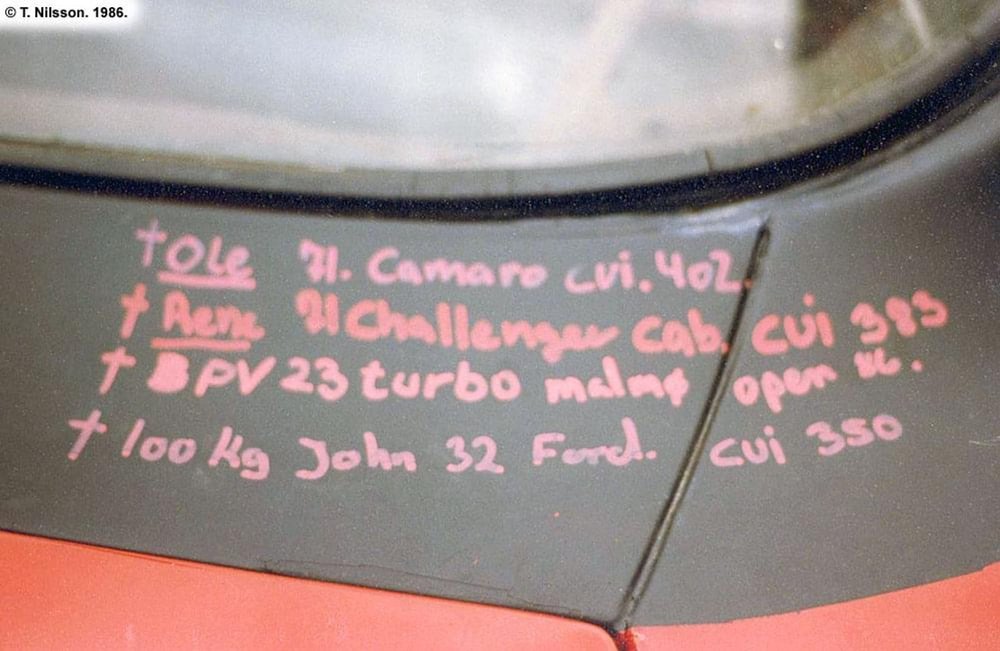 © T. Nilsson. 1986.
† Ole 71. Camaro cui. 402.
† Rene 71 Challenger cab. cui 383
† BPV 23 turbo malmø open
† 100 Kg John 32 Ford. cui 350